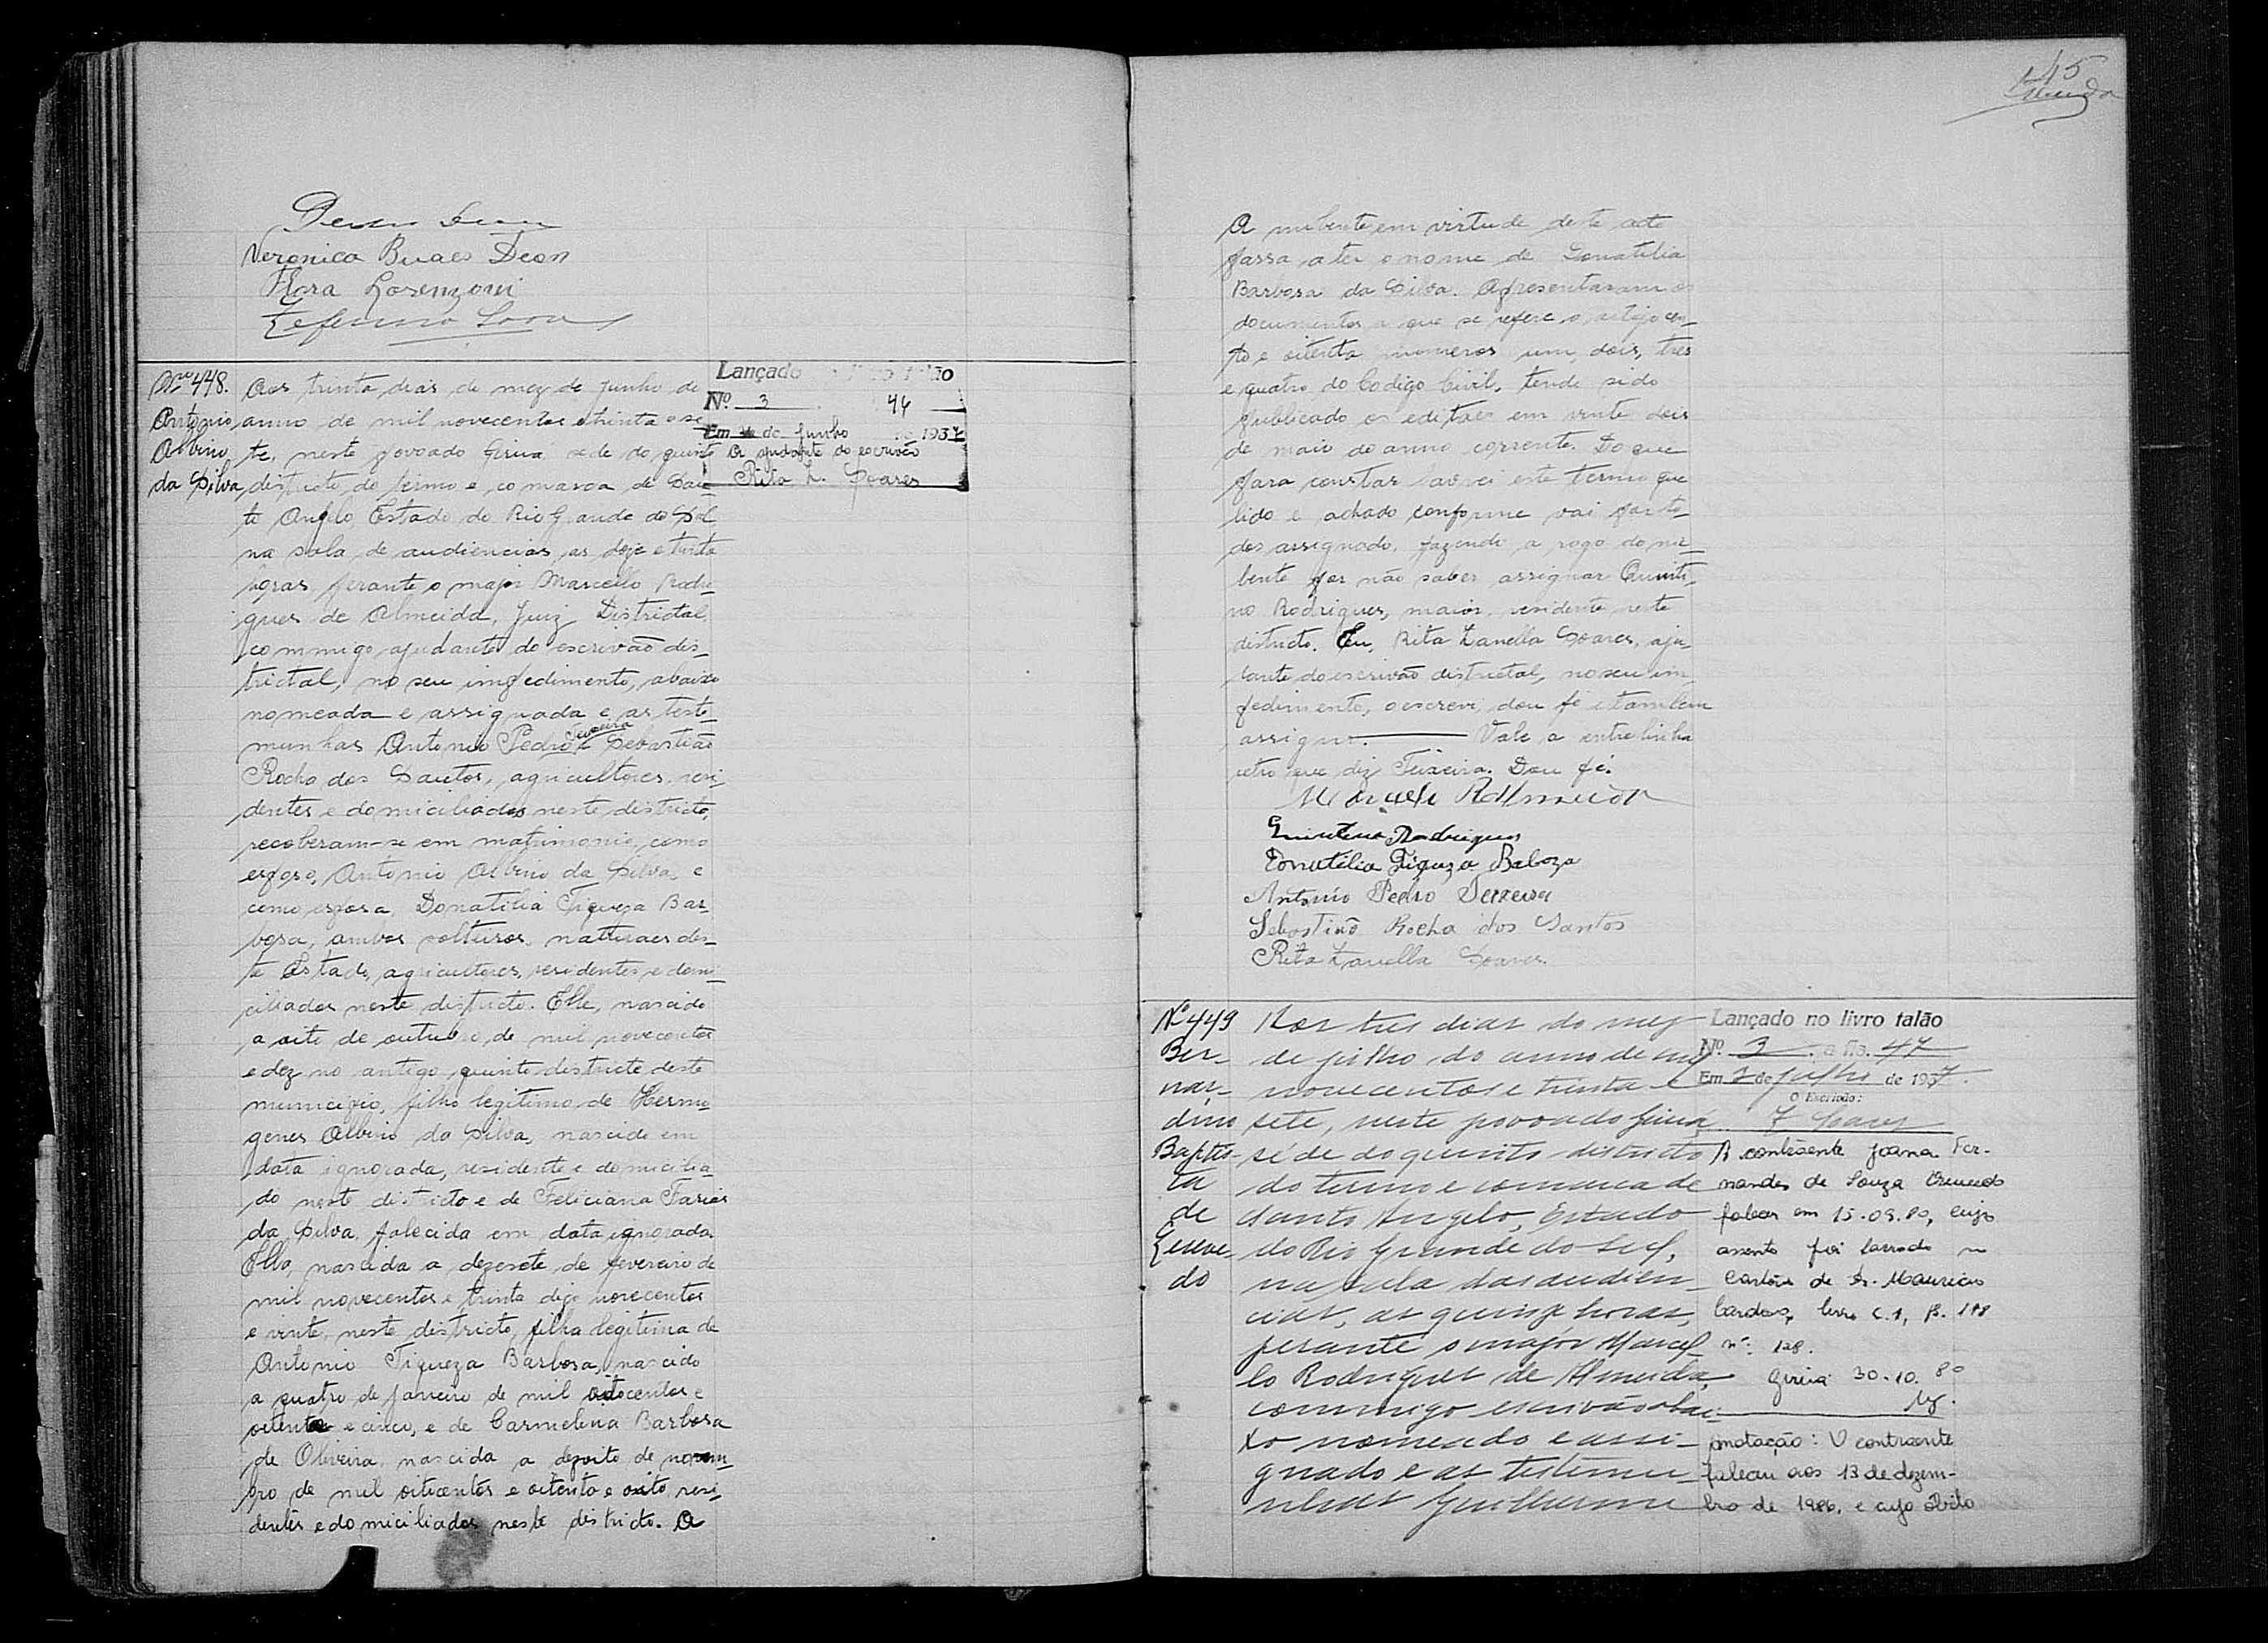 45
Veronica Buaes Deon
Flora Lorenzoni
Zeferino Soares
Nº 448.
Antonio
Albino
da Silva
Aos trinta dias do mez de junho do
anno de mil novecentos e trinta e se
te, neste povoado Giruá séde do quinto
districto do termo e comarca de San
to Angelo Estado do Rio Grande do Sul
na sala de audiencias, as doze e trinta
horas perante o major Marcello Rodri
gues de Almeida, Juiz Districtal,
commigo ajudante do escrivão dis_
trictal, no seu impedimento, abaixo
nomeada e assignada e as teste_
munhas Antonio Pedro Teixeira e Sebastião
Rocha dos Santos, agricultores, resi
dentes e domiciliados neste districto,
receberam-se em matrimonio, como
esposo, Antonio Albino da Silva, e
como esposa, Donatilia Figueza Bar_
bosa, ambos solteiros, naturaes des_
te Estado, agricultores, residentes e domi
ciliados neste districto. Elle, nascido
a oito de outubro de mil novecentos
e dez no antigo quinto districto deste
municipio, filho legitimo de Hermo
genes Albino da Silva, nascido em
data ignorada, residente e domicilia
do neste districto e de Feliciana Farias
da Silva, falecida em data ignorada.
Ella, nascida a dezesete de fevereiro de
mil novecentos e trinta digo novecentos
e vinte, neste districto, filha legitima de
Antonio Figueza Barbosa, nascido
a quatro de janeiro de mil oitocentos e
oitenta e cinco, e de Carmelina Barbosa
de Oliveira, nascida a dezoito de novem_
bro de mil oitocentos e oitenta e oito, resi_
dentes e domiciliados neste districto. A
Lançado
talão
Nº 3 46
Em de Junho 1937
A ajudante do escrivão
Rita Z. Soares
A nubente em virtude deste acto
passa a ter o nome de Donatilia
Barbosa da Silva. Apresentaram os
documentos a que se refere o artigo cen_
to e oitenta numeros um, dois, tres
e quatro do Codigo Civil, tendo sido
publicado os editaes em vinte dois
de maio do anno corrente. Do que
para constar lavrei este termo que
lido e achado conforme vai por to_
dos assignado, fazendo a rogo do nu_
bente por não saber assignar Quinti_
no Rodrigues, maior, residente neste
districto. Eu, Rita Zanella Soares, aju_
dante do escrivão districtal, no seu im_
pedimento, o escrevi, dou fé e tambem
assigno. Vale a entrelinha
retro que diz Teixeira. Dou fé.
Quintino Rodrigues
Donatilia Figueza Baboza
Antonio Pedro Teixeira
Sebastião Rocha dos Santos
Rita Zanella Soares.
Nº 449
Ber_
nar_
dino
Baptis_
ta
de
do
Aos tres dias do mez
de julho do anno de mil
novecentos e trinta e
sete, neste povoado Giruá,
séde do quinto districto
do termo e comarca de
Santo Angelo, Estado
do Rio Grande do Sul,
na sala das audien_
cias, as quinze horas,
perante o major Marcel_
lo Rodrigues de Almeida,
commigo escrivão abai_
xo nomeado e assi_
gnado e as testemu_
nhas Guilherme
Lançado no livro talão
Nº 3 a fls. 47
Em 3 de julho de 1937.
O Escrivão:
Z Soares
A contraente Joana Fer-
nandes de Souza
faleceu em 15.09.80, cujo
assento foi lavrado no
Cartório de Dr. Mauricio
Cardoso, livro C.1, fl. 188
nº 128.
Giruá 30.10.80
Anotação: O contraente
faleceu aos 13 de dezem-
bro de 1986, e cujo óbito